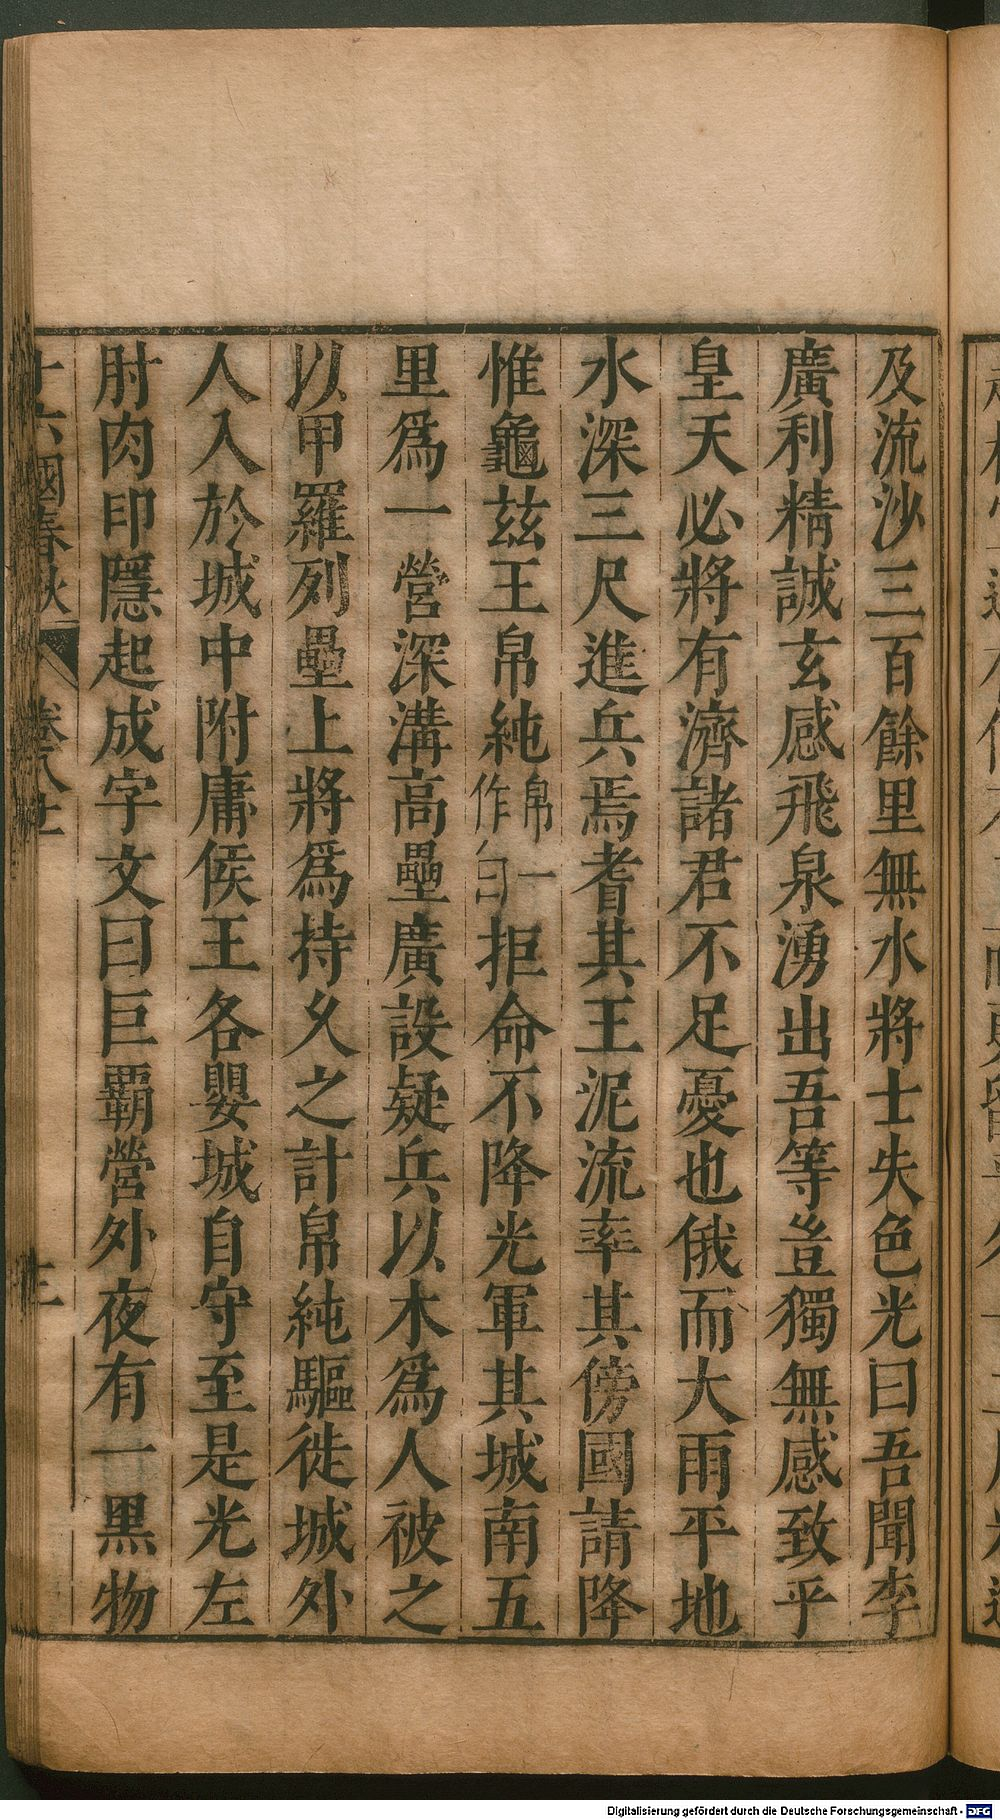 及流沙三百餘里無水將士失色光曰吾聞李
廣利精誠玄感飛泉湧出吾等豈獨無感致乎
皇天必將有濟諸君不足憂也俄而大雨平地
水深三尺進兵焉耆其王泥流率其傍國請降
惟龜茲王帛純帛一作白拒命不降光軍其城南五
里爲一營深溝高壘廣設疑兵以木爲人被之
以甲羅列壘上將爲持久之計帛純驅徙城外
人入於城中附庸侯王各嬰城自守至是光左
肘肉印隱起成字文曰巨覇營外夜有一黑物
十六國春秋 卷八十 三
Digitalisierung gefördert durch die Deutsche Forschungsgemeinschaft - DFG